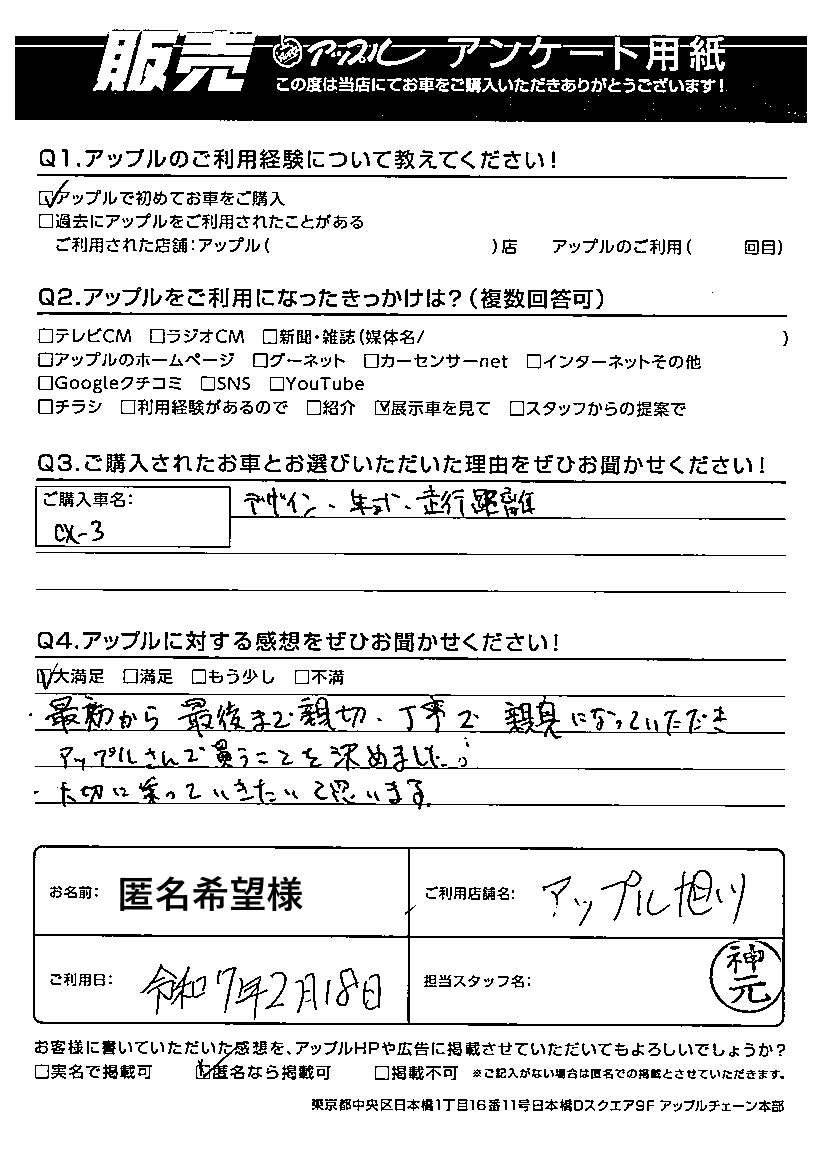 販売 アップル アンケート用紙
この度は当店にてお車をご購入いただきありがとうございます!
Q1.アップルのご利用経験について教えてください!
☑アップルで初めてお車をご購入
□過去にアップルをご利用されたことがある
ご利用された店舗:アップル( )店 アップルのご利用( 回目)
Q2.アップルをご利用になったきっかけは?(複数回答可)
□テレビCM □ラジオCM □新聞・雑誌(媒体名/ )
□アップルのホームページ □グーネット □カーセンサーnet □インターネットその他
□Googleクチコミ □SNS □YouTube
□チラシ □利用経験があるので □紹介 ☑展示車を見て □スタッフからの提案で
Q3.ご購入されたお車とお選びいただいた理由をぜひお聞かせください!
ご購入車名: デザイン・年式・走行距離
CX-3
Q4.アップルに対する感想をぜひお聞かせください!
☑大満足 □満足 □もう少し □不満
・最初から最後まで親切・丁寧で親身になっていただき
アップルさんで買うことを決めました。
・大切に乗っていきたいと思います。
お名前: 匿名希望様 ご利用店舗名: アップル旭川
ご利用日: 令和7年2月18日 担当スタッフ名: 神元
お客様に書いていただいた感想を、アップルHPや広告に掲載させていただいてもよろしいでしょうか?
□実名で掲載可 ☑匿名なら掲載可 □掲載不可 ※ご記入がない場合は匿名での掲載とさせていただきます。
東京都中央区日本橋1丁目16番11号日本橋Dスクエア9F アップルチェーン本部